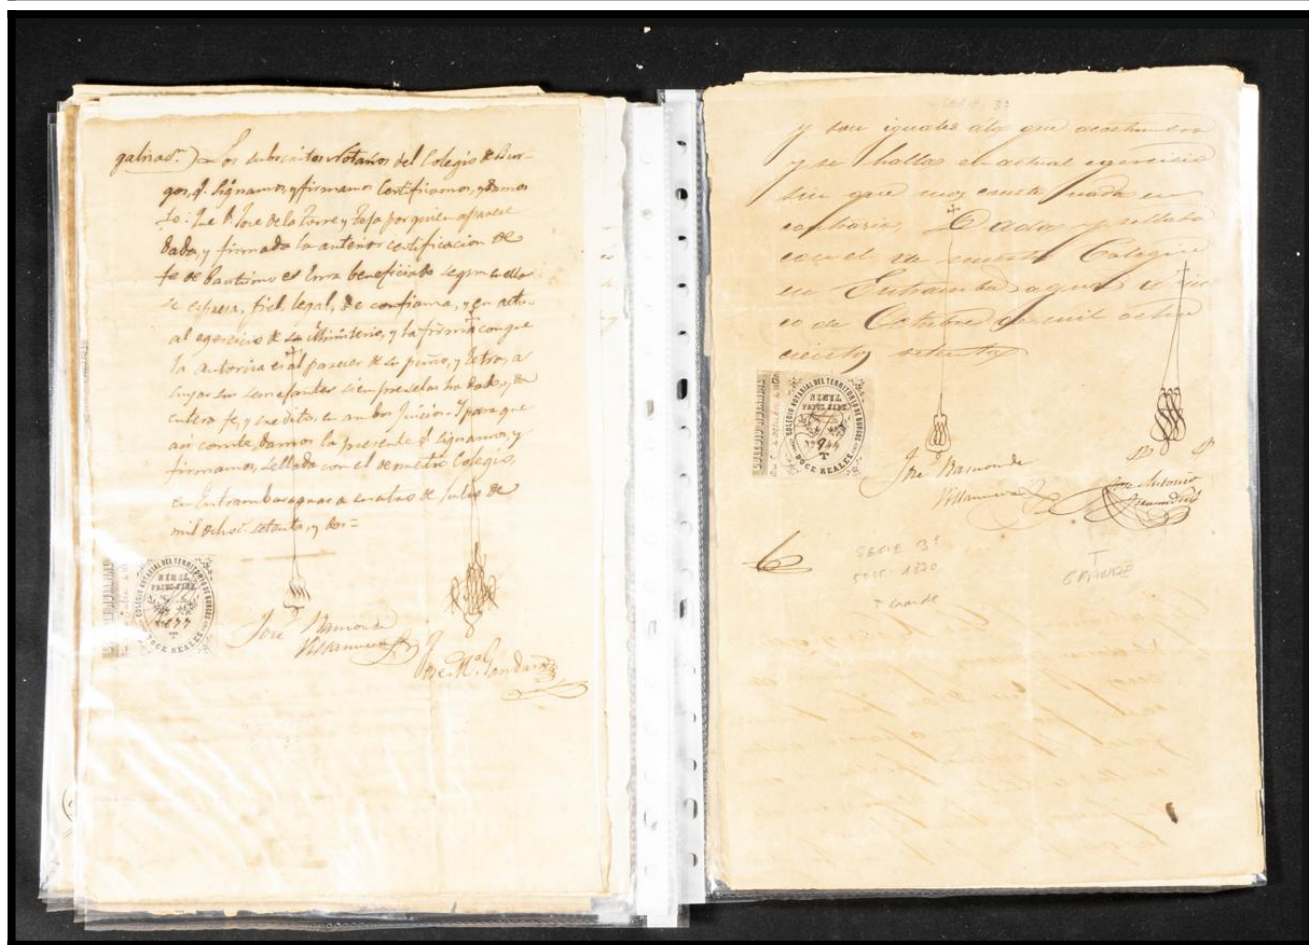 galizasn.) Los subscritos Notarios del Colegio de Bur-
gos, q. signamos, y firmamos Certificamos, y damos
fe: Que D. Jose de la Torre y por quien aparece
dada, y firmada la anterior certificacion de
fe de Bautismo es Cura beneficiado segun en ella
se espresa, fiel, legal, de confianza, y en actu-
al egercicio de su Ministerio, y la firma con que
la autoriza es al parecer de su puño, y letra, a
cuyas semejantes siempre se les ha dado, y da
entera fe, y credito, en ambos Juicios. Y para que
asi conste damos la presente q. signamos, y
firmamos, sellada con el de nuestro Colegio,
en Entrambasaguas a cuatro de Julio de
mil ochoc. setenta, y dos=
COLEGIO NOTARIAL DEL TERRITORIO DE BURGOS
NIHIL
PRIUS FIDE
DOCE REALES
José Ramon de
Villanueva
Jose Ma. Gandara
SERIE 3ª
y son iguales á las que acostumbra
y se hallan en actual egercicio
sin que nos conste nada en
contrario, Dada y sellada
con el de nuestro Colegio
en Entrambasaguas á
de Octubre de mil ocho
cientos setenta
COLEGIO NOTARIAL DEL TERRITORIO DE BURGOS
NIHIL
PRIUS FIDE
Nº 944
T
DOCE REALES
José Ramon de
Villanueva
Jose Antonio
SERIE 3ª
1870
T Grande
T
GRANDE